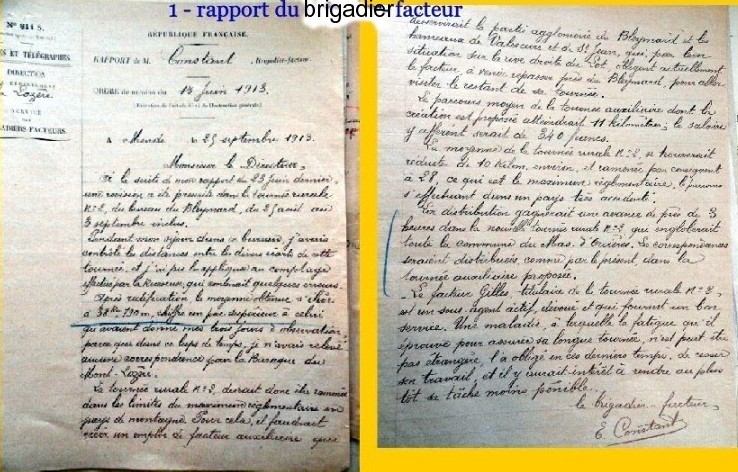 1 - rapport du brigadier facteur
N° 911 S.
RÉPUBLIQUE FRANÇAISE.
ES ET TÉLÉGRAPHES
RAPPORT DE M. Constant, Brigadier-facteur.
DIRECTION
Lozère
ORDRE de service du 13 Juin 1913.
SERVICE
DES
GADIERS-FACTEURS.
A Mende, le 25 septembre 1913.
Monsieur le Directeur,
A la suite de mon rapport du 23 Juin dernier,
une révision a été prescrite dans la tournée rurale
N° 2, du bureau du Bleymard, du 31 août au
3 septembre inclus.
Pendant mon séjour dans ce bureau, j'avais
contrôlé les distances entre les divers écarts de cette
tournée, et j'ai pu les appliquer au comptage
effectué par la Receveuse, qui contenait quelques erreurs.
Après rectification, la moyenne obtenue s'élève
à 38k 790m, chiffre un peu supérieur à celui
qu'avaient donné mes trois jours d'observation,
parce que dans ce laps de temps, je n'avais relevé
aucune correspondance pour la Baraque du
Mont-Lozère.
La tournée rurale N° 2, devrait donc être ramenée
dans les limites du maximum réglementaire en
pays de montagne. Pour cela, il faudrait
créer un emploi de facteur auxiliaire qui
desservirait la partie agglomérée du Bleymard et les
hameaux de Valescure et de St Jean, qui, par leur
situation sur la rive droite du Lot, obligent actuellement
le facteur, à venir repasser près du Bleymard, pour aller
visiter le restant de sa tournée.
Le parcours moyen de la tournée auxiliaire dont la
création est proposée atteindrait 11 kilomètres; le salaire
y afférent serait de 340 francs.
La moyenne de la tournée rurale N° 2, se trouverait
réduite de 10 kilom. environ, et ramenée par conséquent
à 28, ce qui est le maximum réglementaire, le parcours
s'effectuant dans un pays très accidenté.
La distribution gagnerait une avance de près de 3
heures dans la nouvelle tournée rurale N° 2, qui engloberait
toute la commune du Mas d'Orcières. Les correspondances
seraient distribuées, comme par le présent, dans la
tournée auxiliaire proposée.
Le facteur Gilles, titulaire de la tournée rurale N° 2,
est un sous-agent actif, dévoué et qui fournit un bon
service. Une maladie, à laquelle la fatigue qu'il
éprouve pour assurer sa longue tournée, n'est peut être
pas étrangère, l'a obligé en ces derniers temps, de cesser
son travail, et il y aurait intérêt à rendre au plus
tôt sa tâche moins pénible.
le brigadier-facteur,
E. Constant